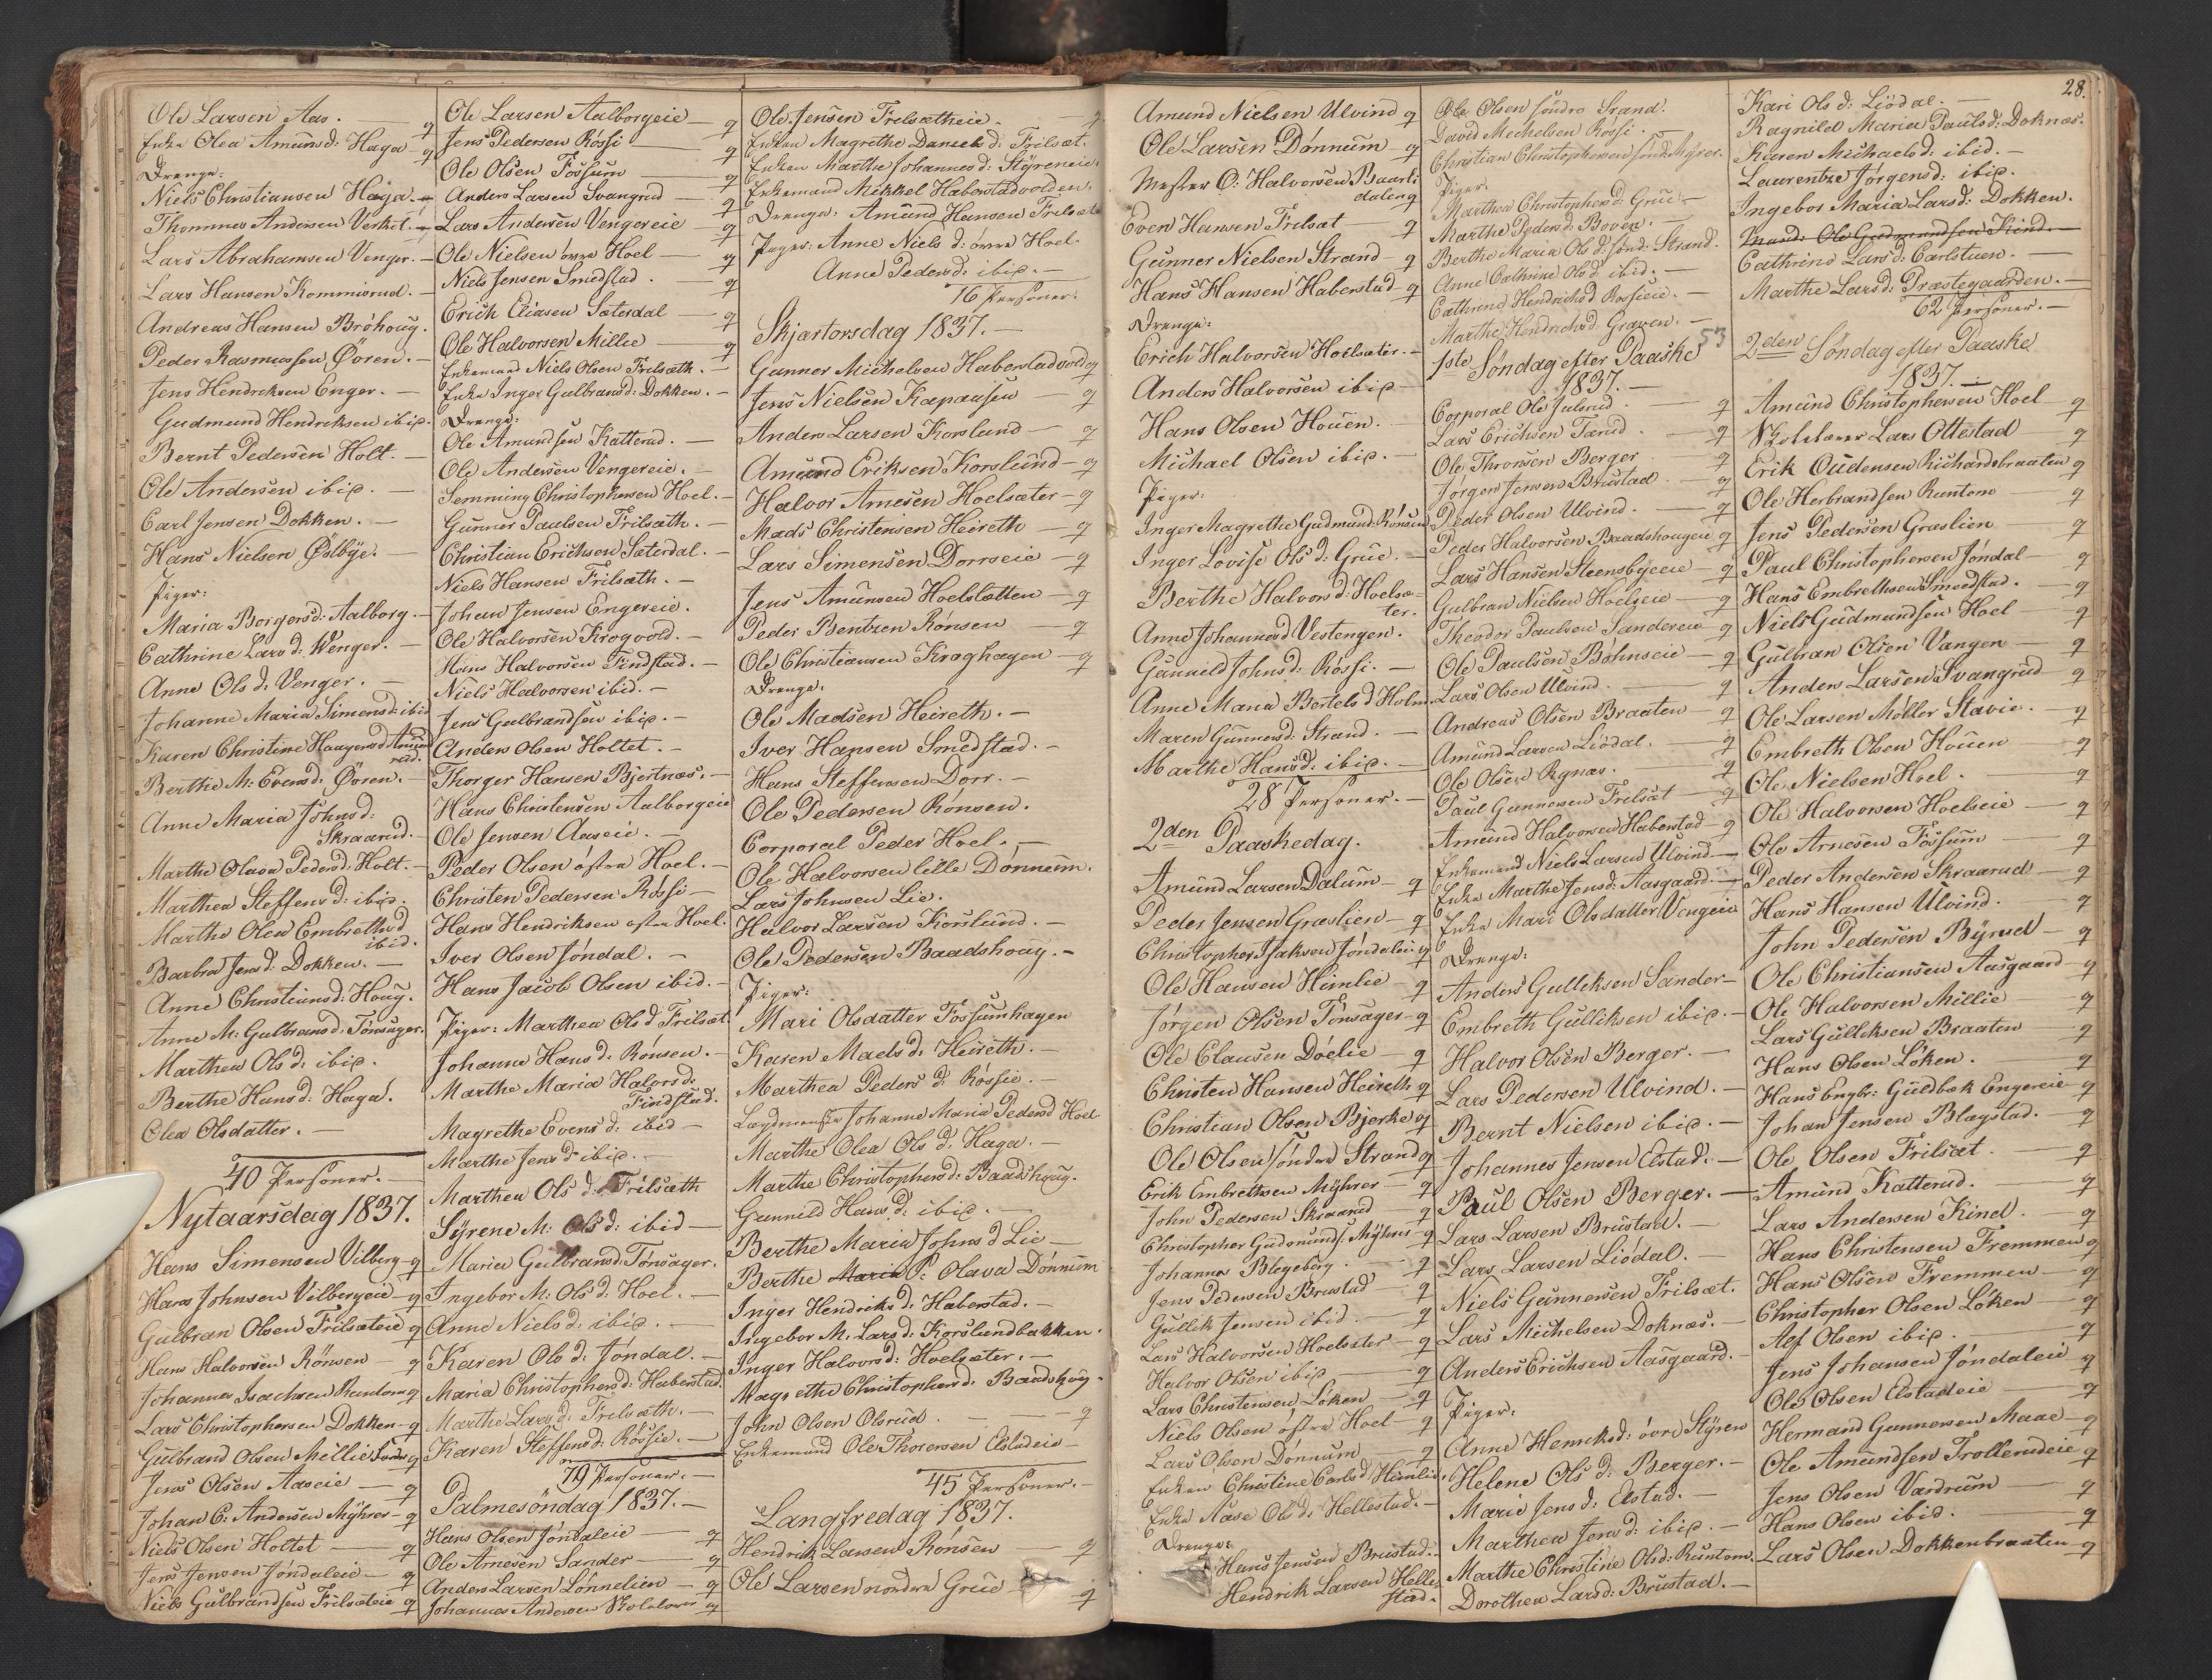 Ole Larsen Aas. — q
Enke Olea Amunds d: Haga — q
Drenge:
Niels Christiansen Haga. —
Thommes Andersen Verket. —
Lars Abrahamsen Venger. —
Lars Hansen Kommisrud. —
Andreas Hansen Bröhoug.
Peder Rasmussen Öeren. —
Jens Hendriksen Enger. —
Gudmund Hendriksen ibid.
Bernt Pedersen Holt. —
Ole Andersen ibid. —
Carl Jensen Dokken. —
Hans Nielsen Östbye. —
Piger:
Maria Borgersd: Aalborg. —
Cathrine Lars d: Wenger. —
Anne Ols d: Venger. —
Johanne Maria Simensd: ibid
Karen Christine Haagensd Amund
rud.
Berthe M: Evens d: Öeren. —
Anne Maria Johns d:
Skraarud. —
Marthe Olava Peders d: Holt. —
Marthea Steffens d: ibid.
Marthe Olea Embrethsd
ibid.
Barbra Jens d: Dokken. —
Anne Christians d: Houg.
Anne M: Gulbransd: Tönsager.
Marthea Ols d: ibid.
Berthe Hans d: Haga.
Olea Olsdatter. —
40 Personer. —
Nytaarsdag 1837.
Hans Simensen Vilberg — q
Hans Johnsen Vilbergeie — q
Gulbran Olsen Frilsæteie q
Hans Halvorsen Rönsen — q
Johannes Isachsen Rundom q
Lars Christophersen Dokken — q
Gulbrand Olsen Millie q
Jens Olsen Aaseie — q
Johan C: Andersen Myhrer — q
Niels Olsen Holtet — q
Jens Jensen Jöndaleie — q
Niels Gulbrandsen Frilsæteie q
Ole Larsen Aalborgeie — q
Jens Pedersen Rössi — q
Ole Olsen Fossum — q
Anders Larsen Svangrud — q
Lars Andersen Vengereie — q
Ole Nielsen övre Hoel — q
Niels Jensen Smedstad. — q
Erich Eliasen Sæterdal — q
Ole Halvorsen Millie — q
Enkemand Niels Olsen Frilsæth. —
Enke Inger Gulbrans d: Dokken. —
Drenge:
Ole Amundsen Katterud. —
Ole Andersen Vengereie. —
Semming Christophersen Hoel. —
Gunner Paulsen Frilsæth. —
Christian Erichsen Sæterdal. —
Niels Hansen Frilsæth. —
Johan Jensen Engereie.
Ole Halvorsen Krogvold. —
Hans Halvorsen Findstad. —
Niels Halvorsen ibid. —
Jens Gulbrandsen ibid. —
Anders Olsen Holtet. —
Thorger Hansen Bjertnæs. —
Hans Christensen Aalborgeie
Ole Jensen Aaseie. —
Peder Olsen östre Hoel. —
Christen Pedersen Rössi —
Hans Hendriksen östre Hoel.
Iver Olsen Jöndal. —
Hans Jacob Olsen ibid. —
Piger: Marthea Ols d Frilsæt.
Johanne Hans d: Rönsen. —
Marthe Maria Halvors d:
Findstad.
Magrethe Evens d: ibid —
Marthe Jens d ibid. —
Marthea Ols d: Frilsæth
Syrene M: Ols d: ibid —
Maria Gulbransd: Tönsager.
Ingebor M: Ols d: Hoel. —
Anne Niels d: ibid. —
Karen Ols d: Jöndal. —
Maria Christophersd: Haberstad.
Marthe Lars d: Frilsæth. —
Karen Steffens d: Rössie. —
79 Personer. —
Palmesöndag 1837. —
Hans Olsen Jöndaleie — q
Ole Arnesen Sander — q
Anders Larsen Lönnelien — q
Johannes Andersen q
Ole Jensen Frelsætheie. — q
Enken Magrethe Daniels d: Frilsæt.
Enken Marthe Johannes d: Styreneie.
Enkemand Mikkel Haberstadvolden.
Drenge: Amund Hansen Frilsæt
Piger: Anne Niels d: övre Hoel.
Anne Peders d: ibid. —
16 Personer.
Skjærtorsdag 1837. —
Gunner Michelsen Haberstadvold q
Jens Nielsen Kapausen — q
Anders Larsen Korslund — q
Amund Eriksen Korslund — q
Halvor Arnesen Hoelsæter — q
Mads Christensen Heireth — q
Lars Simensen Dorrseie — q
Jens Amunsen Hoelsletten — q
Peder Bentzen Rönsen — q
Ole Christiansen Kroghagen — q
Drenge:
Ole Madsen Heireth. —
Iver Hansen Smedstad. —
Hans Steffensen Dorr. —
Ole Pedersen Rönsen.
Corporal Peder Hoel. —
Ole Halvorsen lille Dönnum.
Lars Johnsen Lie.
Halvor Larsen Korslund. —
Ole Pedersen Baadshoug. —
Piger:
Mari Olsdatter Fossumhagen
Karen Mads d: Heireth. —
Marthea Peders d: Rössie. —
Johanne Maria Pedersd Hoel
Marthe Olea Ols d: Haga. —
Marthe Christophersd: Baadshoug.
Gunnild Hans d: ibid. —
Berthe Maria Johns d Lie —
Berthe Maria P: Olava Dönnum
Inger Hendriks d: Haberstad. —
Ingebor M: Lars d: Korslundbakken.
Inger Halvors d: Hoelsæter. —
Magrethe Christophersd: Baadshoug.
John Olsen Olsrud. — q
Enkemand Ole Thoresen Elstadeie —
45 Personer. —
Langfredag 1837.
Hendrik Larsen Rönsen — q
Ole Larsen nordre Grue — q
28.
Amund Nielsen Ulvind q
Ole Larsen Dönnum — q
Mester O: Halvorsen Baarli
dalen q
Even Hansen Frilsæt — q
Gunner Nielsen Strand — q
Hans Hansen Haberstad q
Drenge:
Erich Halvorsen Hoelsæter. —
Anders Halvorsen ibid —
Hans Olsen Houen. —
Michael Olsen ibid. —
Piger:
Inger Magrethe Gudmunds. Rönsen
Inger Lovise Ols d: Grue. —
Berthe Halvors d: Hoelsæ-
ter.
Anne Johannesd Vestengen.
Gunnild Johns d: Rössi. —
Anne Maria Bertels d Holm.
Maren Gunners d: Strand. —
Marthe Hans d: ibid. —
28 Personer. —
2den Paaskedag.
Amund Larsen Dalum — q
Peder Jensen Græslien — q
Christopher Isaksen Jöndaleie q
Ole Hansen Himlie — q
Jörgen Olsen Tönsager — q
Ole Clausen Döelie — q
Christen Hansen Heireth q
Christian Olsen Bjerke q
Ole Olsen söndre Strand q
Erik Embrethsen Myhrer — q
John Pedersen Skraarud — q
Christopher Gudmunds. Myhrer — q
Johannes Blegeberg. — q
Jens Pedersen Brustad — q
Gullik Jensen ibid. — q
Lars Halvorsen Hoelsæter — q
Halvor Olsen ibid — q
Lars Christensen Löken — q
Niels Olsen östre Hoel — q
Lars Olsen Dönnum — q
Enken Christine Carls d Himlie.
Enke Aase Ols d: Hellestad. —
Drenge:
Hans Jensen Brustad. —
Hendrik Larsen Helle-
stad.
Ole Olsen söndre Srand.
David Michelsen Rössi. —
Christian Christophersen sönd: Myhrer. —
Piger:
Marthea Christophersd: Grue. —
Marthe Peders d. Boven. —
Berthe Maria Ols d: sönd: Strand.
Anne Cathrine Ols d: ibid. —
Cathrine Hendriks d Rossieie. —
Marthe Hendrichsd: Graven. —
53
1ste Söndag efter Paaske
1837. —
Corporal Ole Julsrud. — q
Lars Erichsen Tærud. — q
Ole Thronsen Berger — q
Jörgen Jensen Brustad. — q
Peder Olsen Ulvind. — q
Peder Halvorsen Baadshougeie q
Lars Hansen Steensbyeeie — q
Gulbran Nielsen Hoelseie — q
Theodor Paulsen Sandereie q
Ole Paulsen Böhnseie — q
Lars Olsen Ulvind. — q
Andreas Olsen Braaten — q
Amund Larsen Liödal. — q
Ole Olsen Rognæs. — q
Paul Gunnersen Frilsæt — q
Amund Halvorsen Haberstad — q
Enkemand Niels Larsen Ulvind —
Enke Marthe Jens d: Aasgaard. —
Enke Mari Olsdatter Vengeie
Drenge:
Anders Gulliksen Sander —
Embreth Gulliksen ibid. —
Halvor Olsen Berger. —
Lars Pedersen Ulvind. —
Bernt Nielsen ibid. —
Johannes Jensen Elstad. —
Paul Olsen Berger. —
Lars Larsen Brustad. —
Lars Larsen Liödal. —
Niels Gunnersen Frilsæt.
Lars Michelsen Doknæs. —
Anders Erichsen Aasgaard. —
Piger:
Anne Henriksd: övre Styren
Helene Ols d: Berger. —
Marie Jens d: Elstad. —
Marthea Jens d: ibid. —
Marthe Christine Olsd: Runtom.
Dorothea Lars d: Brustad. —
Kari Ols d: Liödal. —
Ragnild Maria Pauls d: Doknæs.
Karen Michaels d: ibid. —
Laurentze Jörgens d: ibid.
Ingebor Maria Lars d: Dokken.
Mand: Ole Gudmundsen Kind. —
Cathrine Lars d. Carlstuen. —
Marthe Lars d: Præstegaarden. —
62 Personer. —
2den Söndag efter Paaske
1837. —
Amund Christophersen Hoel — q
Skolelærer Lars Ottestad q
Erik Oudensen Richardsbraaten q
Ole Herbrandsen Runtom — q
Jens Pedersen Græslien q
Paul Christophersen Jöndal — q
Hans Embrethsen Smedstad. — q
Niels Gudmundsen Hoel q
Gulbran Olsen Vangen — q
Anders Larsen Svangrud q
Ole Larsen Möller Stavie. — q
Embreth Olsen Houen q
Ole Nielsen Hoel. q
Ole Halvorsen Hoelseie — q
Ole Arnesen Fossum q
Peder Andersen Skraarud — q
Hans Hansen Ulvind. — q
John Pedersen Byrud — q
Ole Christiansen Aasgaard — q
Ole Halvorsen Millie — q
Lars Gulliksen Braaten — q
Hans Olsen Löken. — q
Hans Engbr: Guldbæk Engereie — q
Johan Jensen Blagstad. — q
Ole Olsen Frilsæt. — q
Amund Katterud. — q
Lars Andersen Kind. — q
Hans Christensen Fremmen q
Hans Olsen Fremmen — q
Christopher Olsen Löken — q
Alf Olsen ibid. — q
Jens Johansen Jöndaleie q
Ole Olsen Elstadeie — q
Hermand Gunnersen Maae — q
Ole Amundsen Trollerudeie q
Jens Olsen Værdrum — q
Hans Olsen ibid. — q
Lars Olsen Dokkenbraaten — q